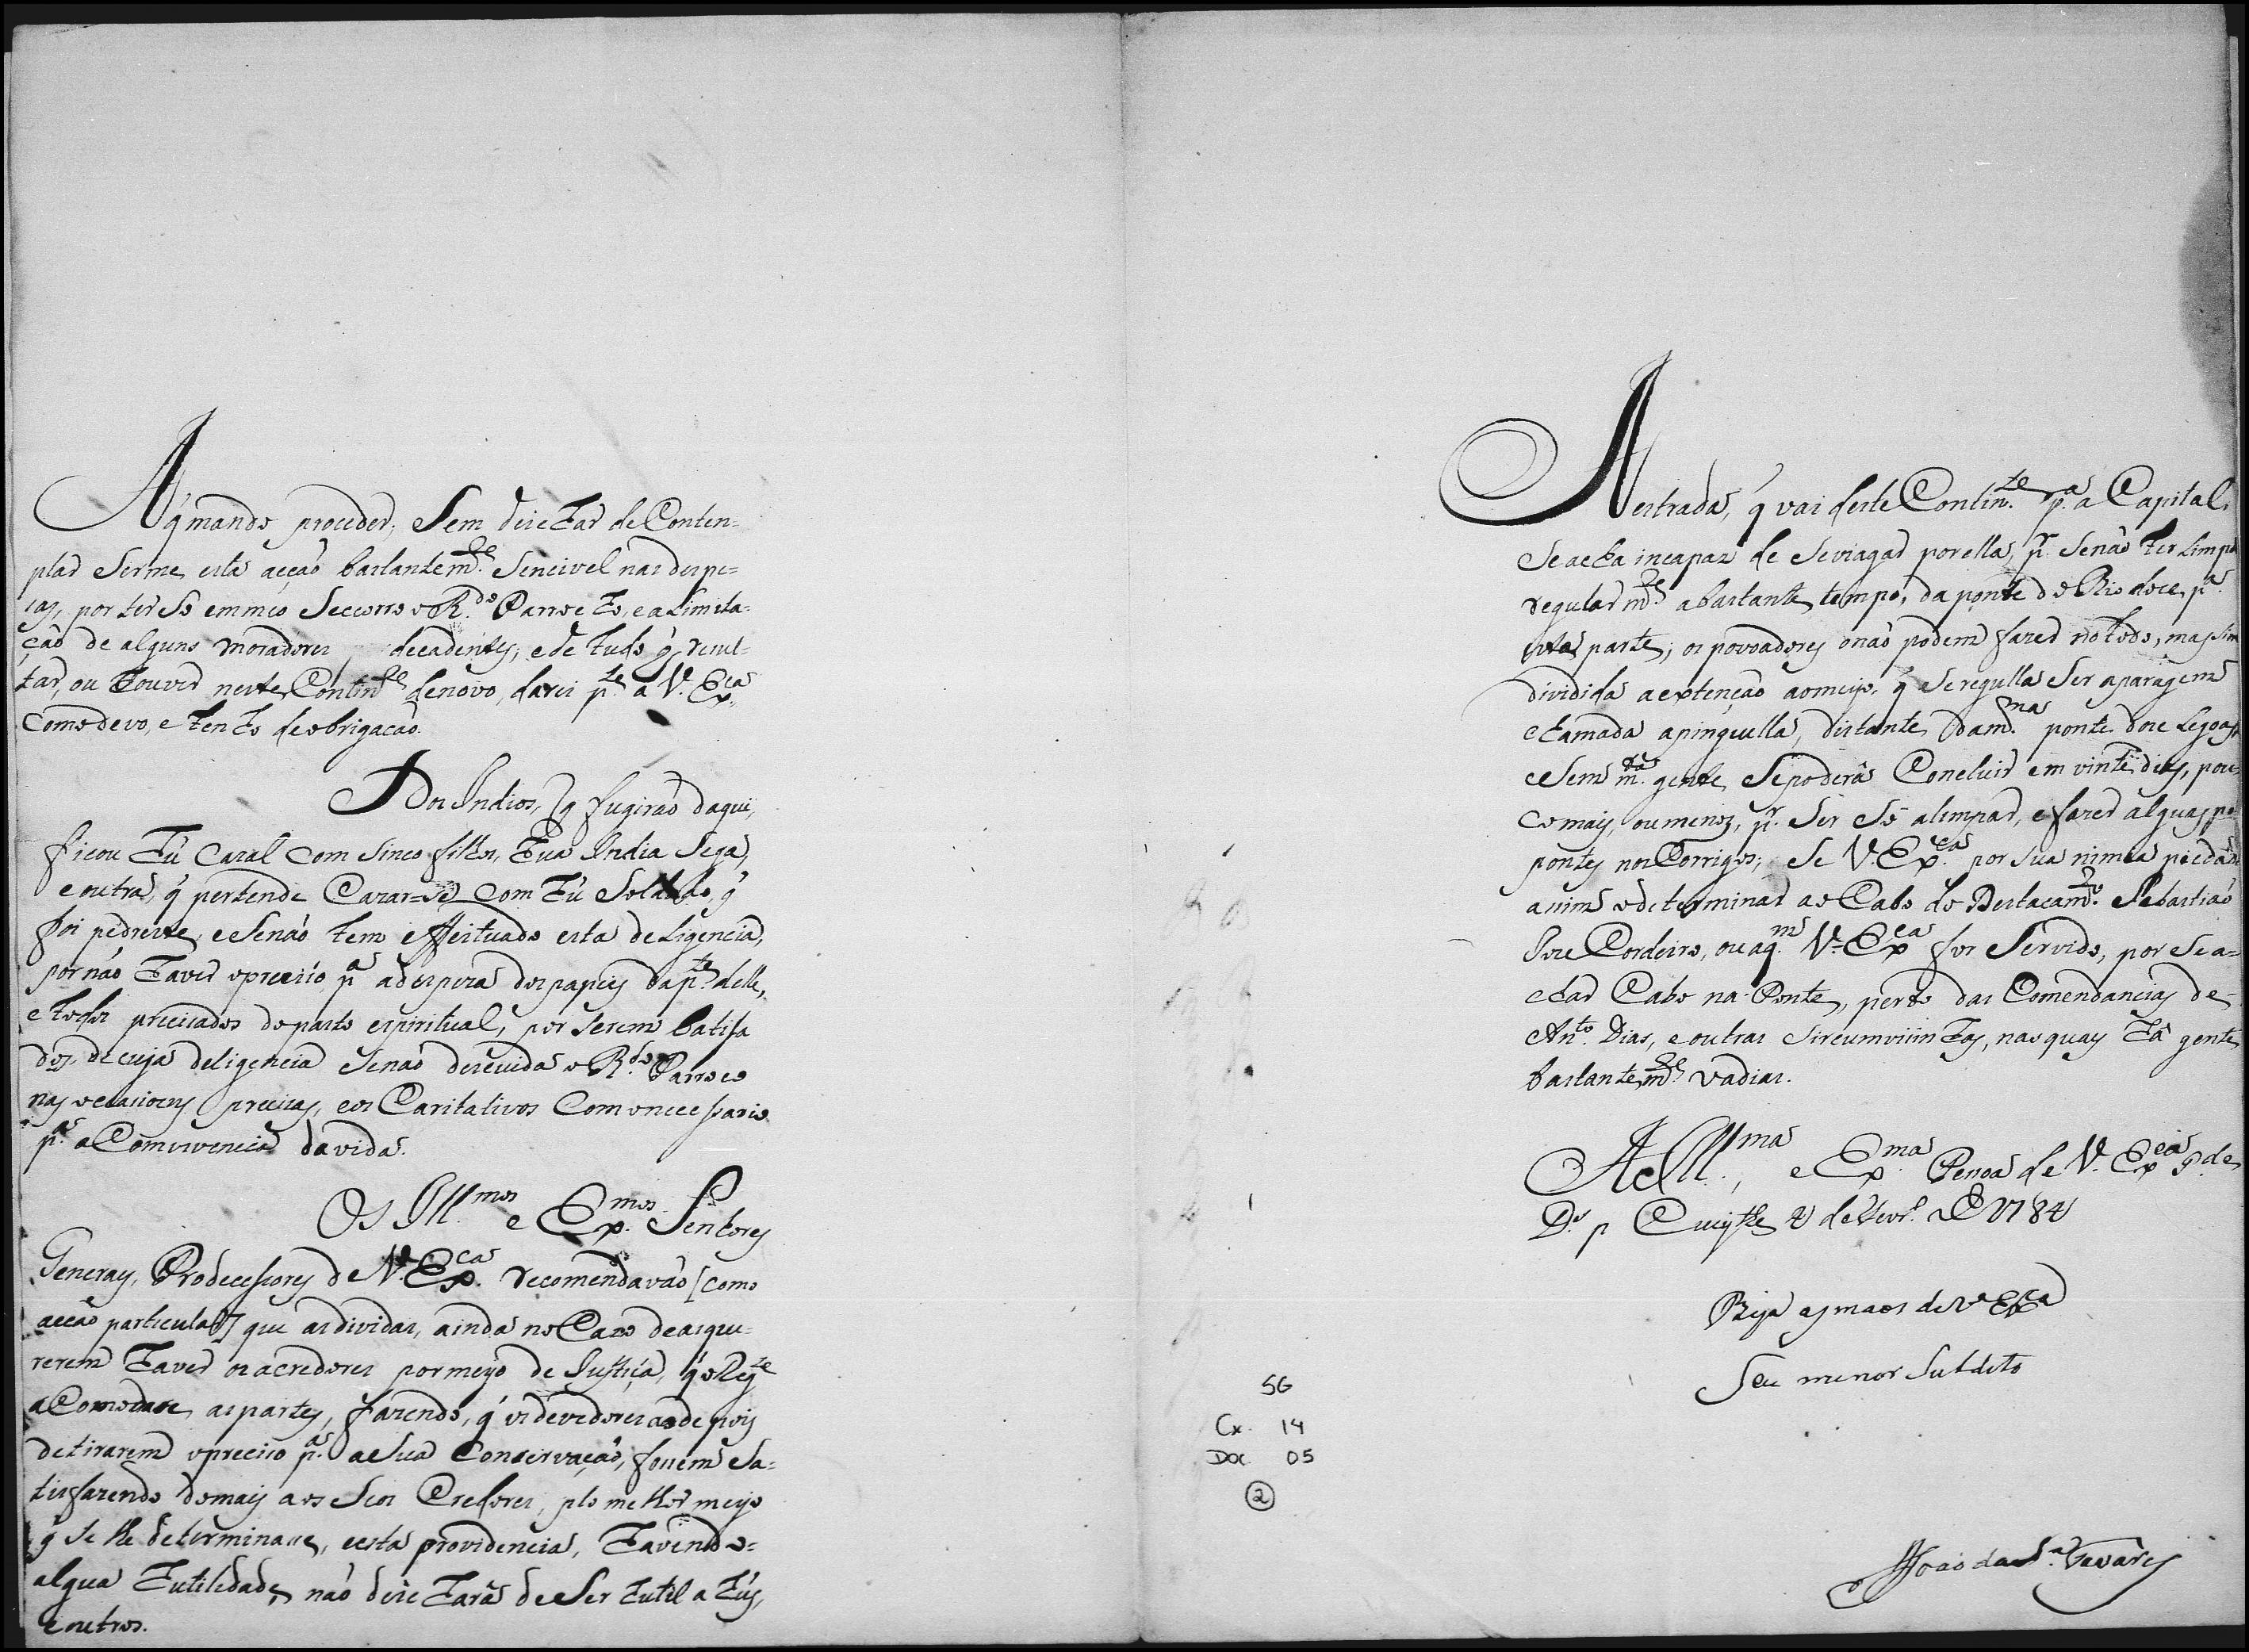 A q̃ mando proceder, Sem deichar de Conten=
plar Serme esta acção bastantem.te Sencivel nas despe=
zas, por ter So em meo Seccorro o R.do Parrocho, e a Limita=
ção de alguns moradores decadentes; e de tudo q̃ rezul=
tar, ou houver neste Contin.te de novo, darei p.te a V. Ex.ca
como devo, e tenho de obrigação.
Dos Indios, q̃ fugirão daqui,
ficou hũ Cazal com Sinco filhos, hua India Sega,
e outra, q̃ pertende Cazar=se com hũ Soldado, q̃
foi pedreste, e Senão tem effeituado esta deligencia,
por não haver o precizo p.a a despeza dos papeis da p.te delle,
e todos precizados do pasto espiritual, por Serem batiza
dos, de cuja deligencia Senão descuida o R.do Parroco
nas occazioens precizas, e os Caritativos Com o necessario
p.a a Comvivencia da vida.
Os Ill.mos e Ex.mos Senhores
Generaes, Prodecessores de V. Ex.ca recomendavão [como
acção particular] que as dividas, ainda no Cazo de as que=
rerem haver os acredores por meyo de Justiça, q̃ o Reg.te
aComodase as partes, fazendo, q̃ os devedores ao depois
de tirarem o precizo p.a a Sua Conservação, fosem Sa=
tisfazendo do mais aos Seos Credores, plo melhor meyo
q̃ se lhe determinase, e esta providencia, havendo=
algua hutilidade, não deicharâ de Ser hutil a hũs,
e outros.
A estrada, q̃ vai deste Contin.te p.a a Capital,
Se acha incapaz de Seviagar por ella, p.r Senão ter Limpo
regularm.te a bastante tempo, da ponte do Rio doce p.a
esta parte; os povoadores o não podem fazer no todo, mas sim
dividida a extenção ao meyo, q̃ Se regulla Ser a paragem
chamada a pinguella, distante da m.ma ponte doze Legoas,
e Sem m.ta gente Se poderâ Concluir em vinte dias, pou=
co mais, ou menos, p.r Ser Só a limpar, e fazer alguas pe
pontes nos Corrigos; Se V. Ex.ca por sua nimia piedade
asim o determinar ao Cabo do Destacam.to Sebastião
Joze Cordeiro, ou a q.m V. Ex.ca for Servido, por Se a=
char Cabo na Ponte, perto das Comendancias de=
An.to Dias, e outras Sircumvizinhas, nas quaes hâ gente
bastantem.te vadias.
A Ill.ma, e Ex.ma Pesoa de V. Ex.cia g.de
D.s
Beija as maos de V. Ex.ca
Seu menor Subdito
João da S.a Tavares
SG
Cx. 14
Doc 05
2